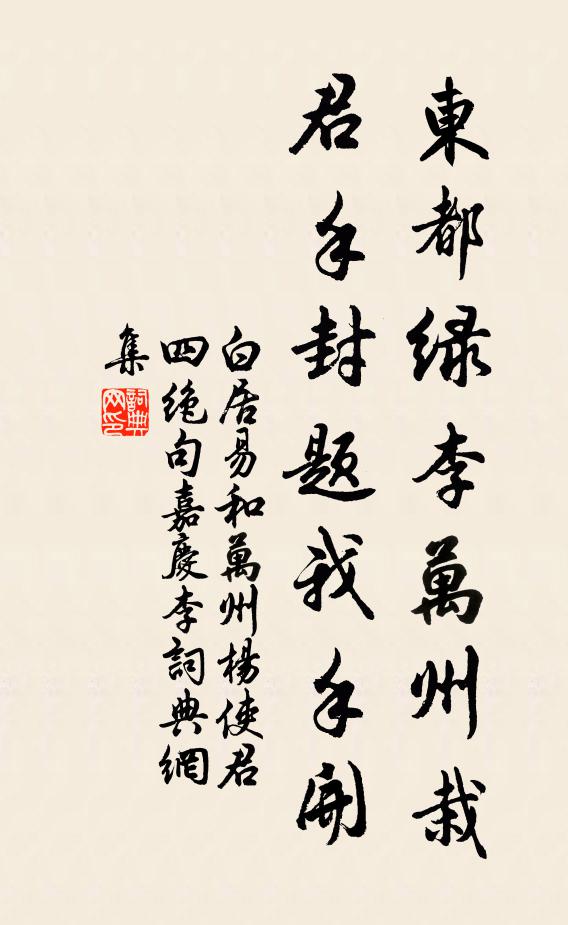 東都綠李萬州栽
君手封題我手開
白居易和萬州楊使君
四絕句嘉慶李詞典網
集
詞典
网印